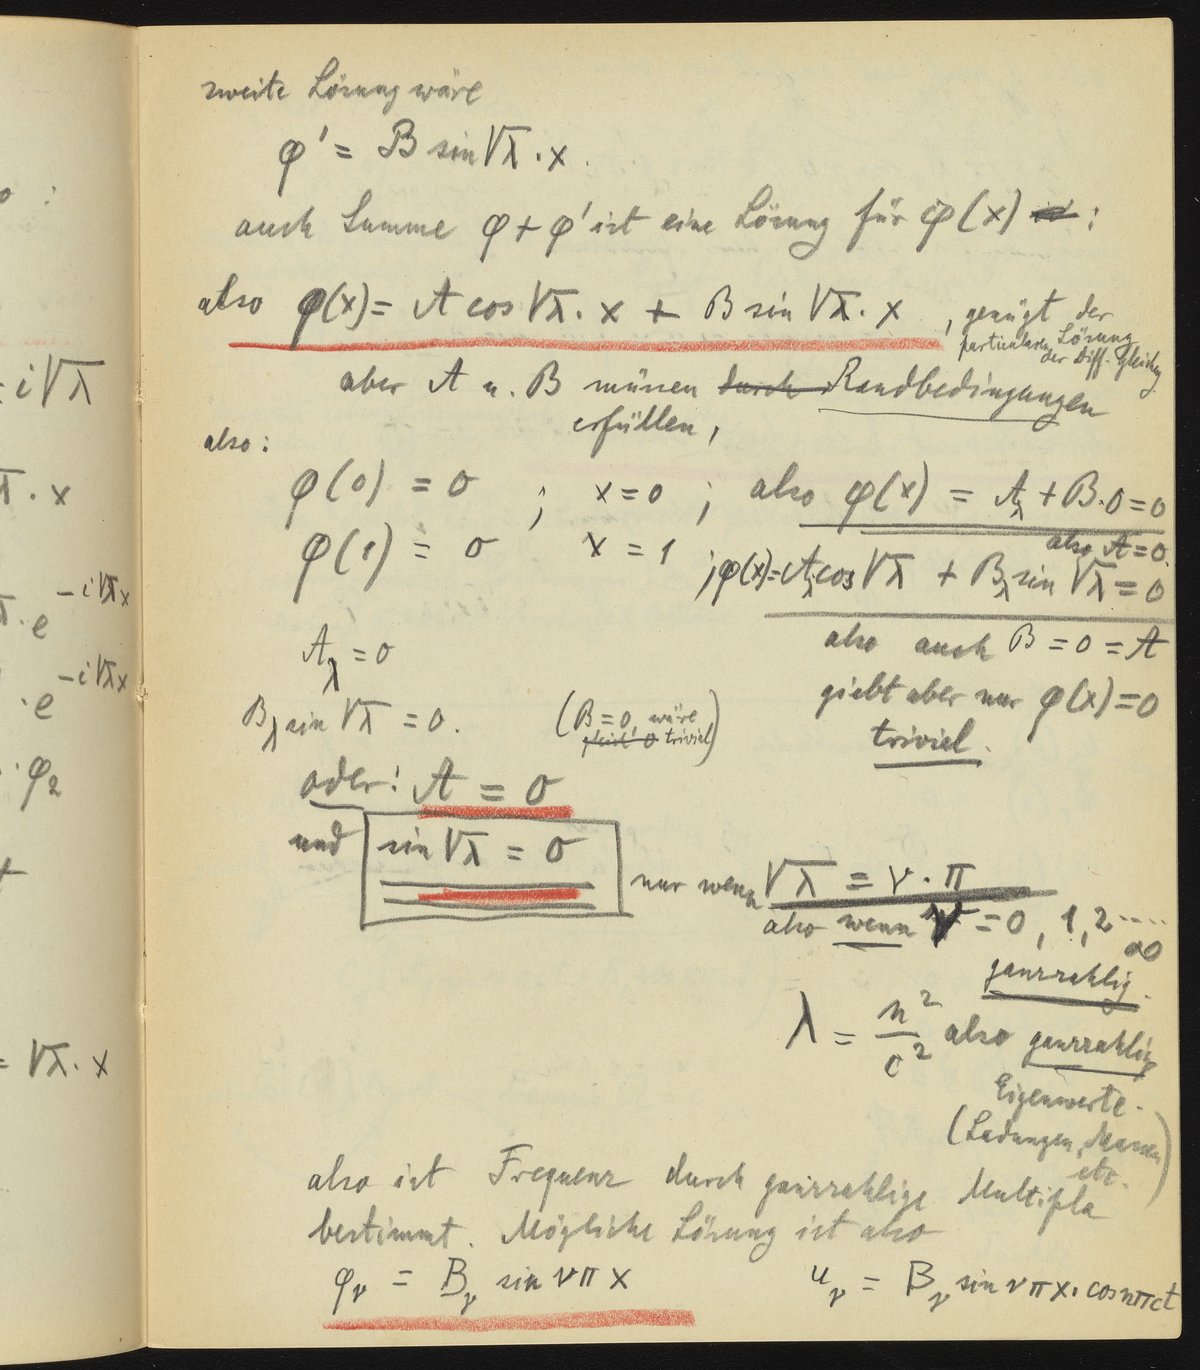 zweite Lösung wäre
φ' = B sin √λ · x.
auch Summe φ + φ' ist eine Lösung für φ(x) :
also φ(x) = A cos √λ · x + B sin √λ · x , genügt der
particulären Lösung
der Diff. Gleichg
aber A u. B müssen durch Randbedingungen
erfüllen,
also:
φ(0) = 0 ; x = 0 ; also φ(x) = A_λ + B·0 = 0
also A = 0.
φ(1) = 0 x = 1 ; φ(x) = A_λ cos √λ + B_λ sin √λ = 0
also auch B = 0 = A
giebt aber nur φ(x) = 0
triviel.
A_λ = 0
B_λ sin √λ = 0. (B = 0, wäre
gleich 0 triviel)
oder: A = 0
und sin √λ = 0 nur wenn √λ = ν · π
also wenn ν = 0, 1, 2 .... ∞
ganzzahlig.
λ = n²/c² also ganzzahlig
Eigenwerte.
(Ladungen, Massen
etc.)
also ist Frequenz durch ganzzahlige Multipla
bestimmt. Mögliche Lösung ist also
φ_ν = B_ν sin ν π x u_ν = B_ν sin ν π x · cos n π c t
o :
= i √λ
√λ · x
√λ · e^{-i√λx}
· e^{-i√λx}
· φ₂
+
= √λ · x